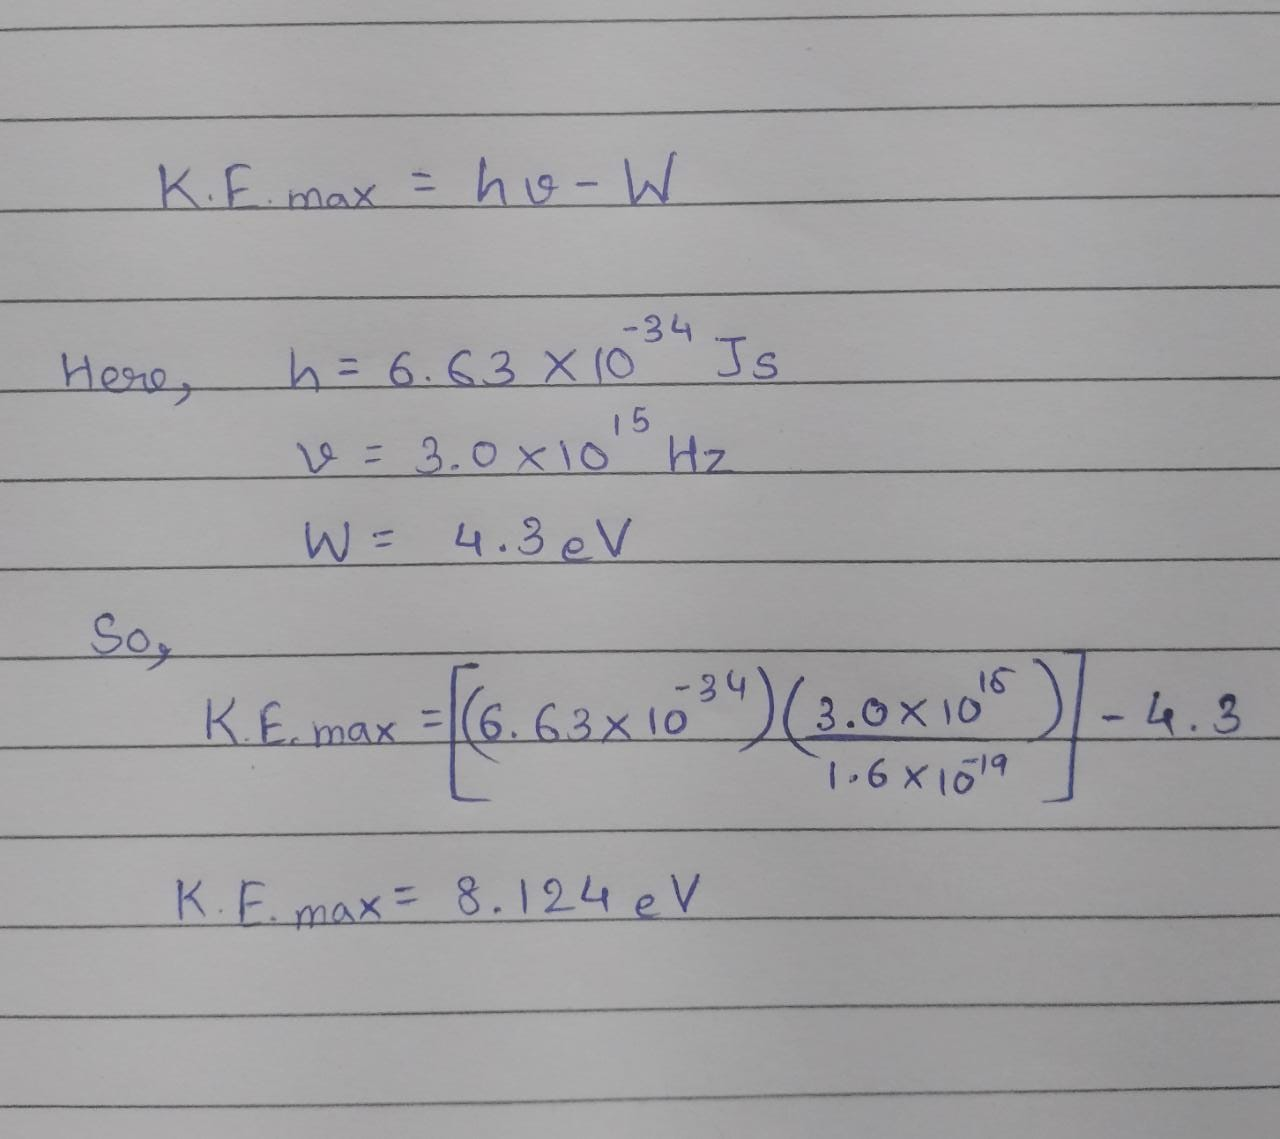 K.E. max = hν - W
Here, h = 6.63 × 10⁻³⁴ Js
ν = 3.0 × 10¹⁵ Hz
W = 4.3 eV
So,
K.E. max = [(6.63 × 10⁻³⁴)(3.0 × 10¹⁵ / 1.6 × 10⁻¹⁹)] - 4.3
K.E. max = 8.124 eV